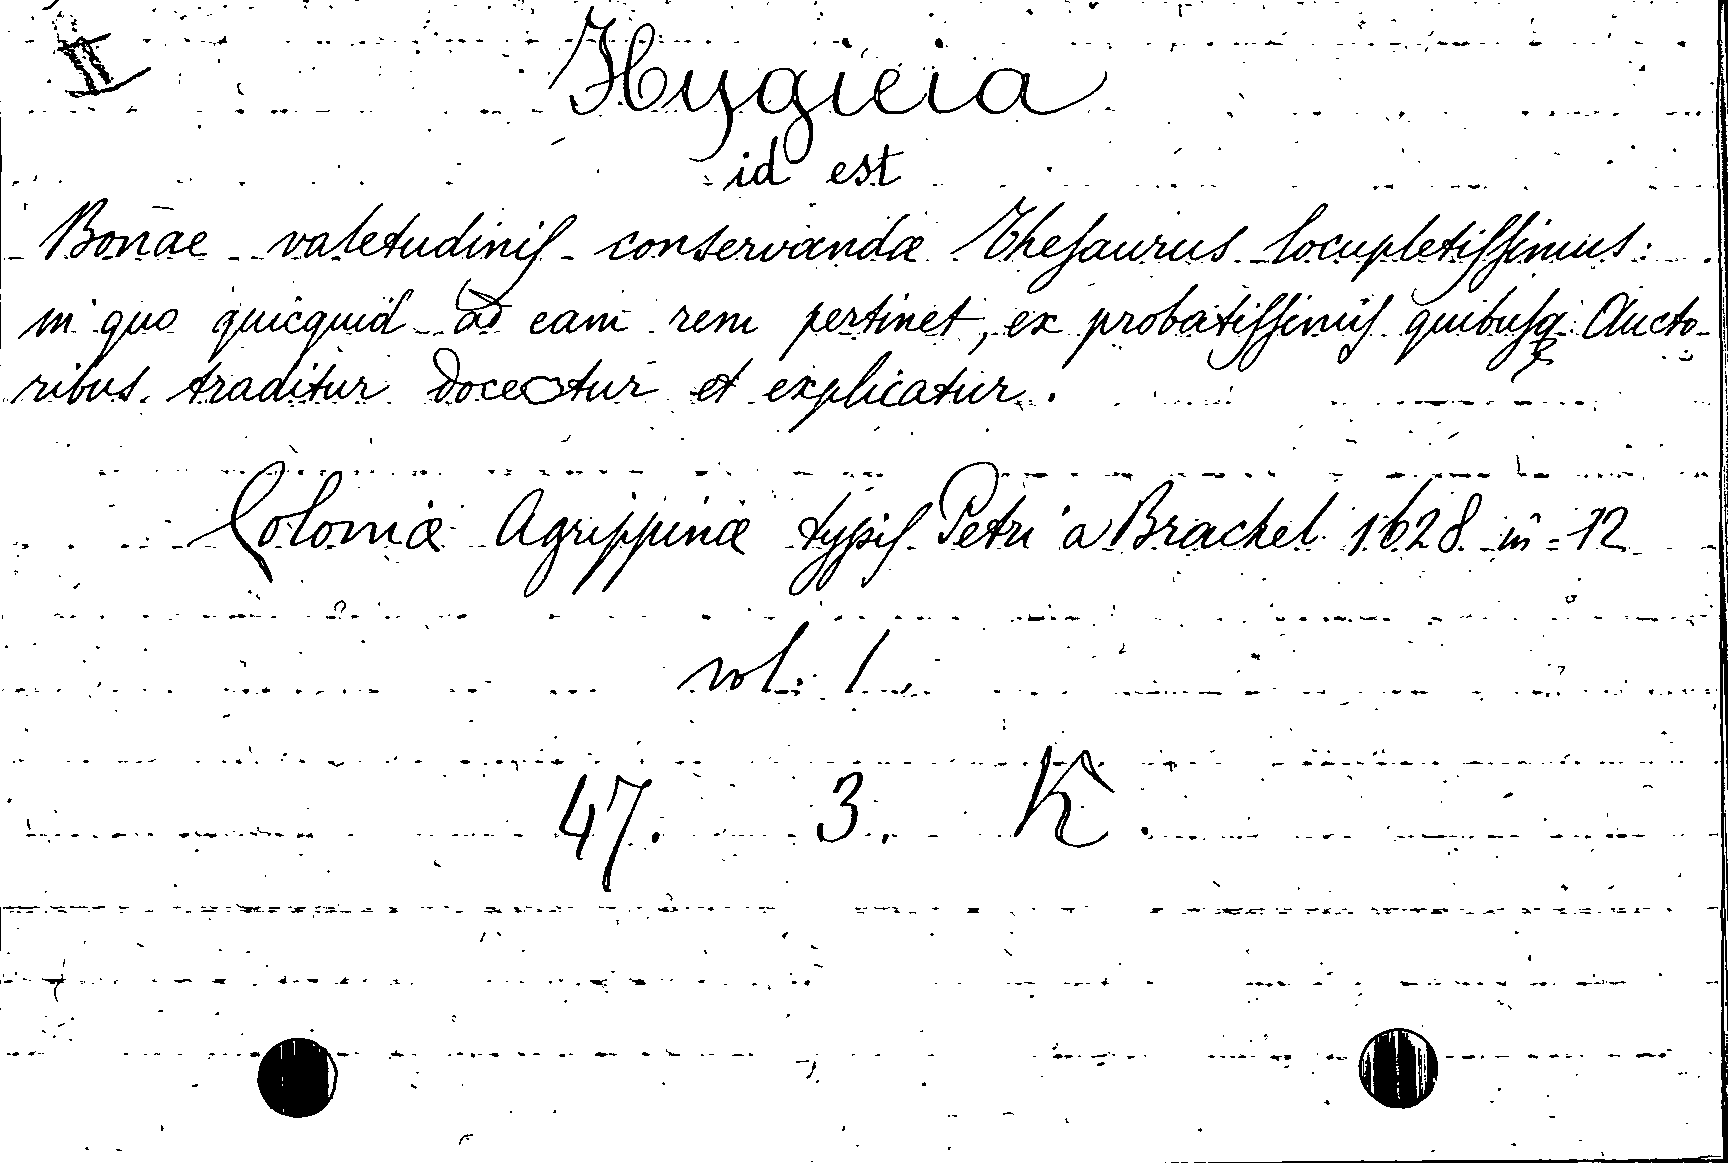 II
Hygieia
id est
Bonae valetudinis conservandæ Thesaurus locupletissimus:
in quo quicquid ad eam rem pertinet, ex probatissimis quibusq Aucto-
ribus traditur docetur et explicatur.
Coloniæ Agrippinæ typis Petri a Brachel 1628 in 12
vol: 1
47. 3. K